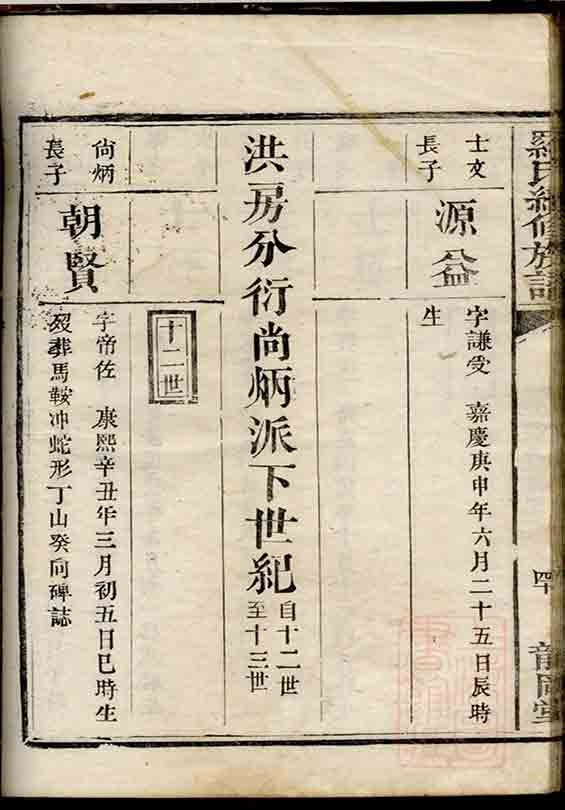 羅氏續修族譜
四
龍岡堂
士文
長子
源益
字謙受 嘉慶庚申年六月二十五日辰時
生
洪房分衍尚炳派下世紀
自十二世
至十三世
十二世
尚炳
長子
朝賢
字帝佐 康熙辛丑年三月初五日巳時生
歿葬馬鞍冲蛇形丁山癸向碑誌